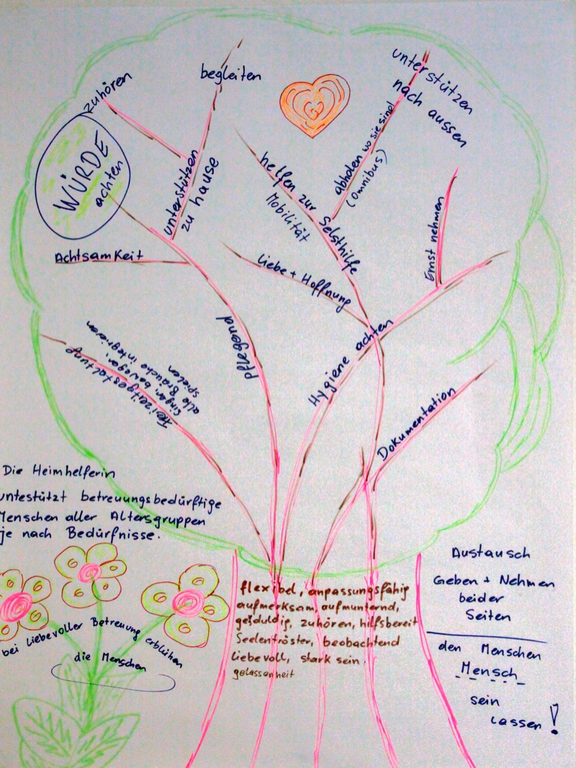 zuhören
begleiten
unterstützen
nach aussen
WÜRDE
achten
unterstützen
zu hause
helfen zur Selsthilfe
Mobilität
abholen wo sie sind
(Omnibus)
Ernst nehmen
Achtsamkeit
Liebe + Hoffnung
pflegend
Hygiene achten
Freizeitgestaltung
singen, bewegen,
alte Bräuche integrieren
spielen
Dokumentation
Die Heimhelferin
untestützt betreuungsbedürftige
Menschen aller Altersgruppen
je nach Bedürfnisse.
bei Liebevoller Betreuung erblühen
die Menschen
flexibel, anpassungsfähig
aufmerksam, aufmunternd,
geduldig, zuhören, hilfsbereit
Seelentröster, beobachtend
liebevoll, stark sein,
gelassenheit
Austausch
Geben + Nehmen
beider
Seiten
den Menschen
Mensch
sein
lassen!